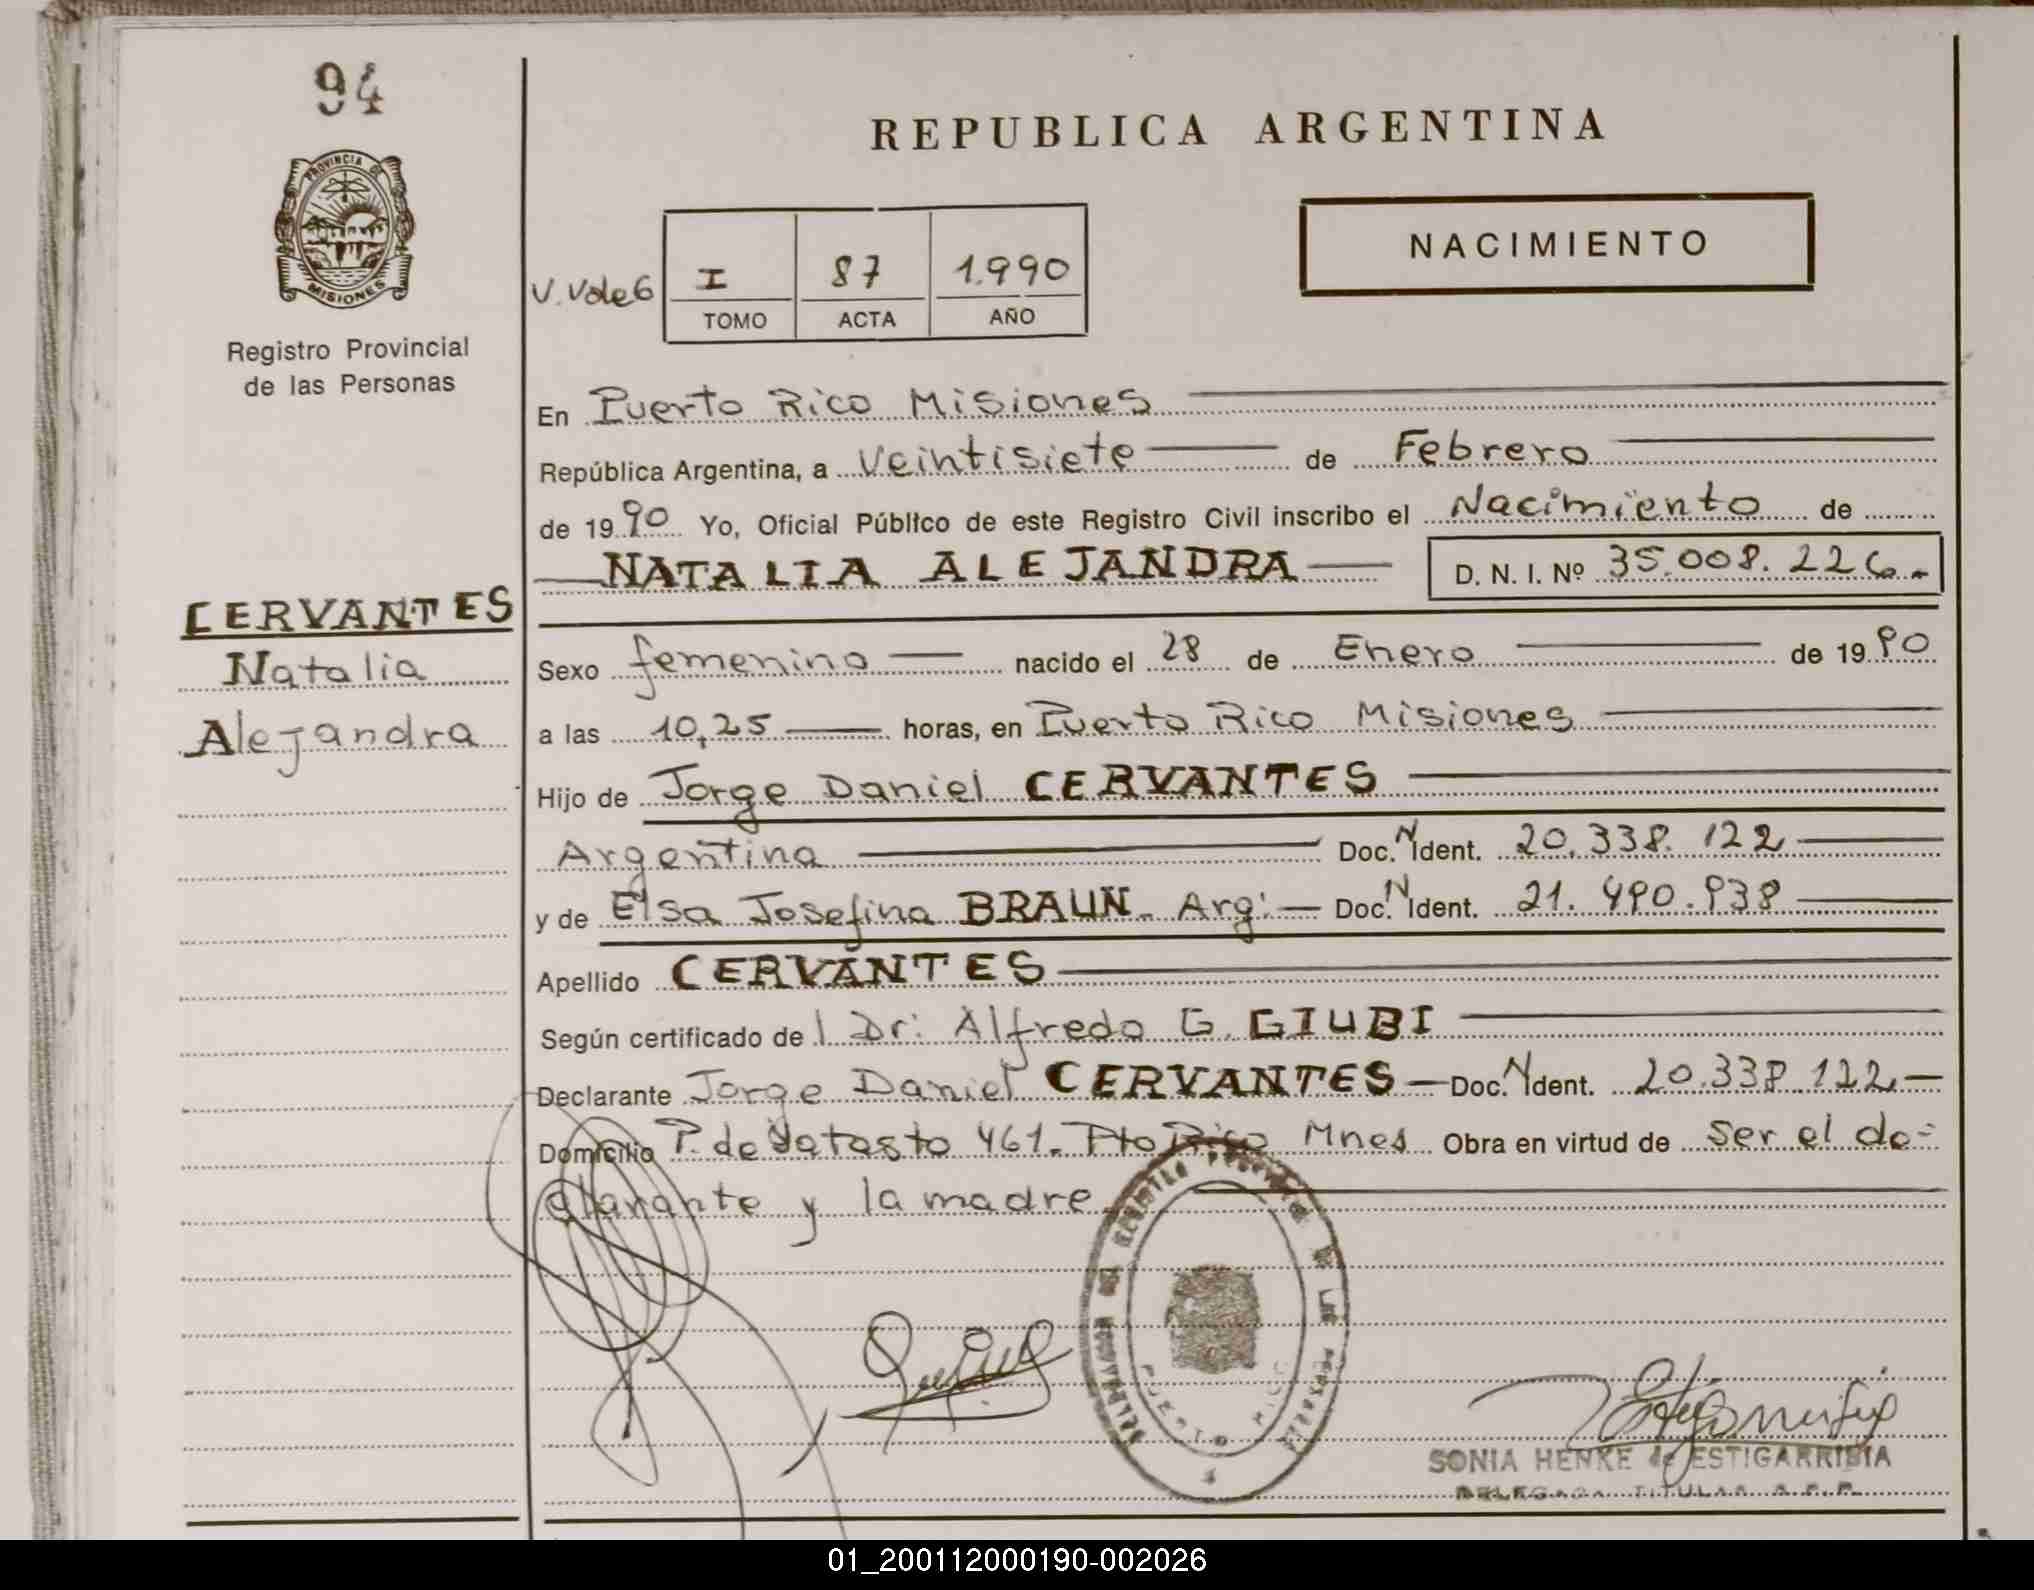 94
REPUBLICA ARGENTINA
PROVINCIA DE
MISIONES
Registro Provincial
de las Personas
NACIMIENTO
I 87 1.990
TOMO ACTA AÑO
En Puerto Rico Misiones
República Argentina, a Veintisiete de Febrero
de 19 90 Yo, Oficial Público de este Registro Civil inscribo el Nacimiento de
NATALIA ALEJANDRA D. N. I. Nº 35.008.226.-
CERVANTES
Natalia
Alejandra
Sexo femenino nacido el 28 de Enero de 19 90
a las 10,25 horas, en Puerto Rico Misiones
Hijo de Jorge Daniel CERVANTES
Argentina Doc. N Ident. 20.338.122
y de Elsa Josefina BRAUN. Arg: Doc. N Ident. 21.490.938
Apellido CERVANTES
Según certificado de l Dr: Alfredo G. GIUBI
Declarante Jorge Daniel CERVANTES Doc. N Ident. 20.338.122
Domicilio P. de Yatasto 461. Pto Rico Mnes Obra en virtud de ser el de-
clarante y la madre
PUERTO RICO
SONIA HENKE de ESTIGARRIBIA
DELEGADA TITULAR R.P.P.
01_200112000190-002026